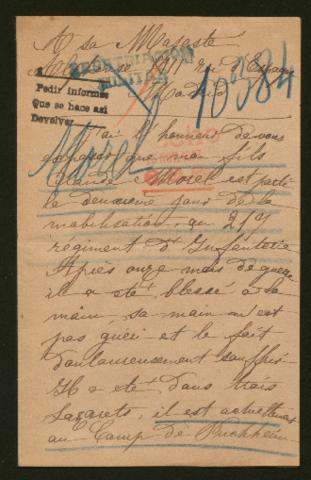 A sa Majesté
Alphonse XIII roi d'Espagne
Madrid
SECRETARIA
MILITAR
10384
Pedir informes
Que se hace asi
Devolver
Morel
J'ai l'honneur de vous
exposer que mon fils
Claude Morel est parti
le deuxième jour de la
mobilisation, au
régiment d'Infanterie
Après onze mois de guerre
il a été blessé à la
main, sa main n'est
pas guéri et le fait
douloureusement souffrir
Il a été dans trois
Lazarets, il est actuellement
au Camp de Puchheim